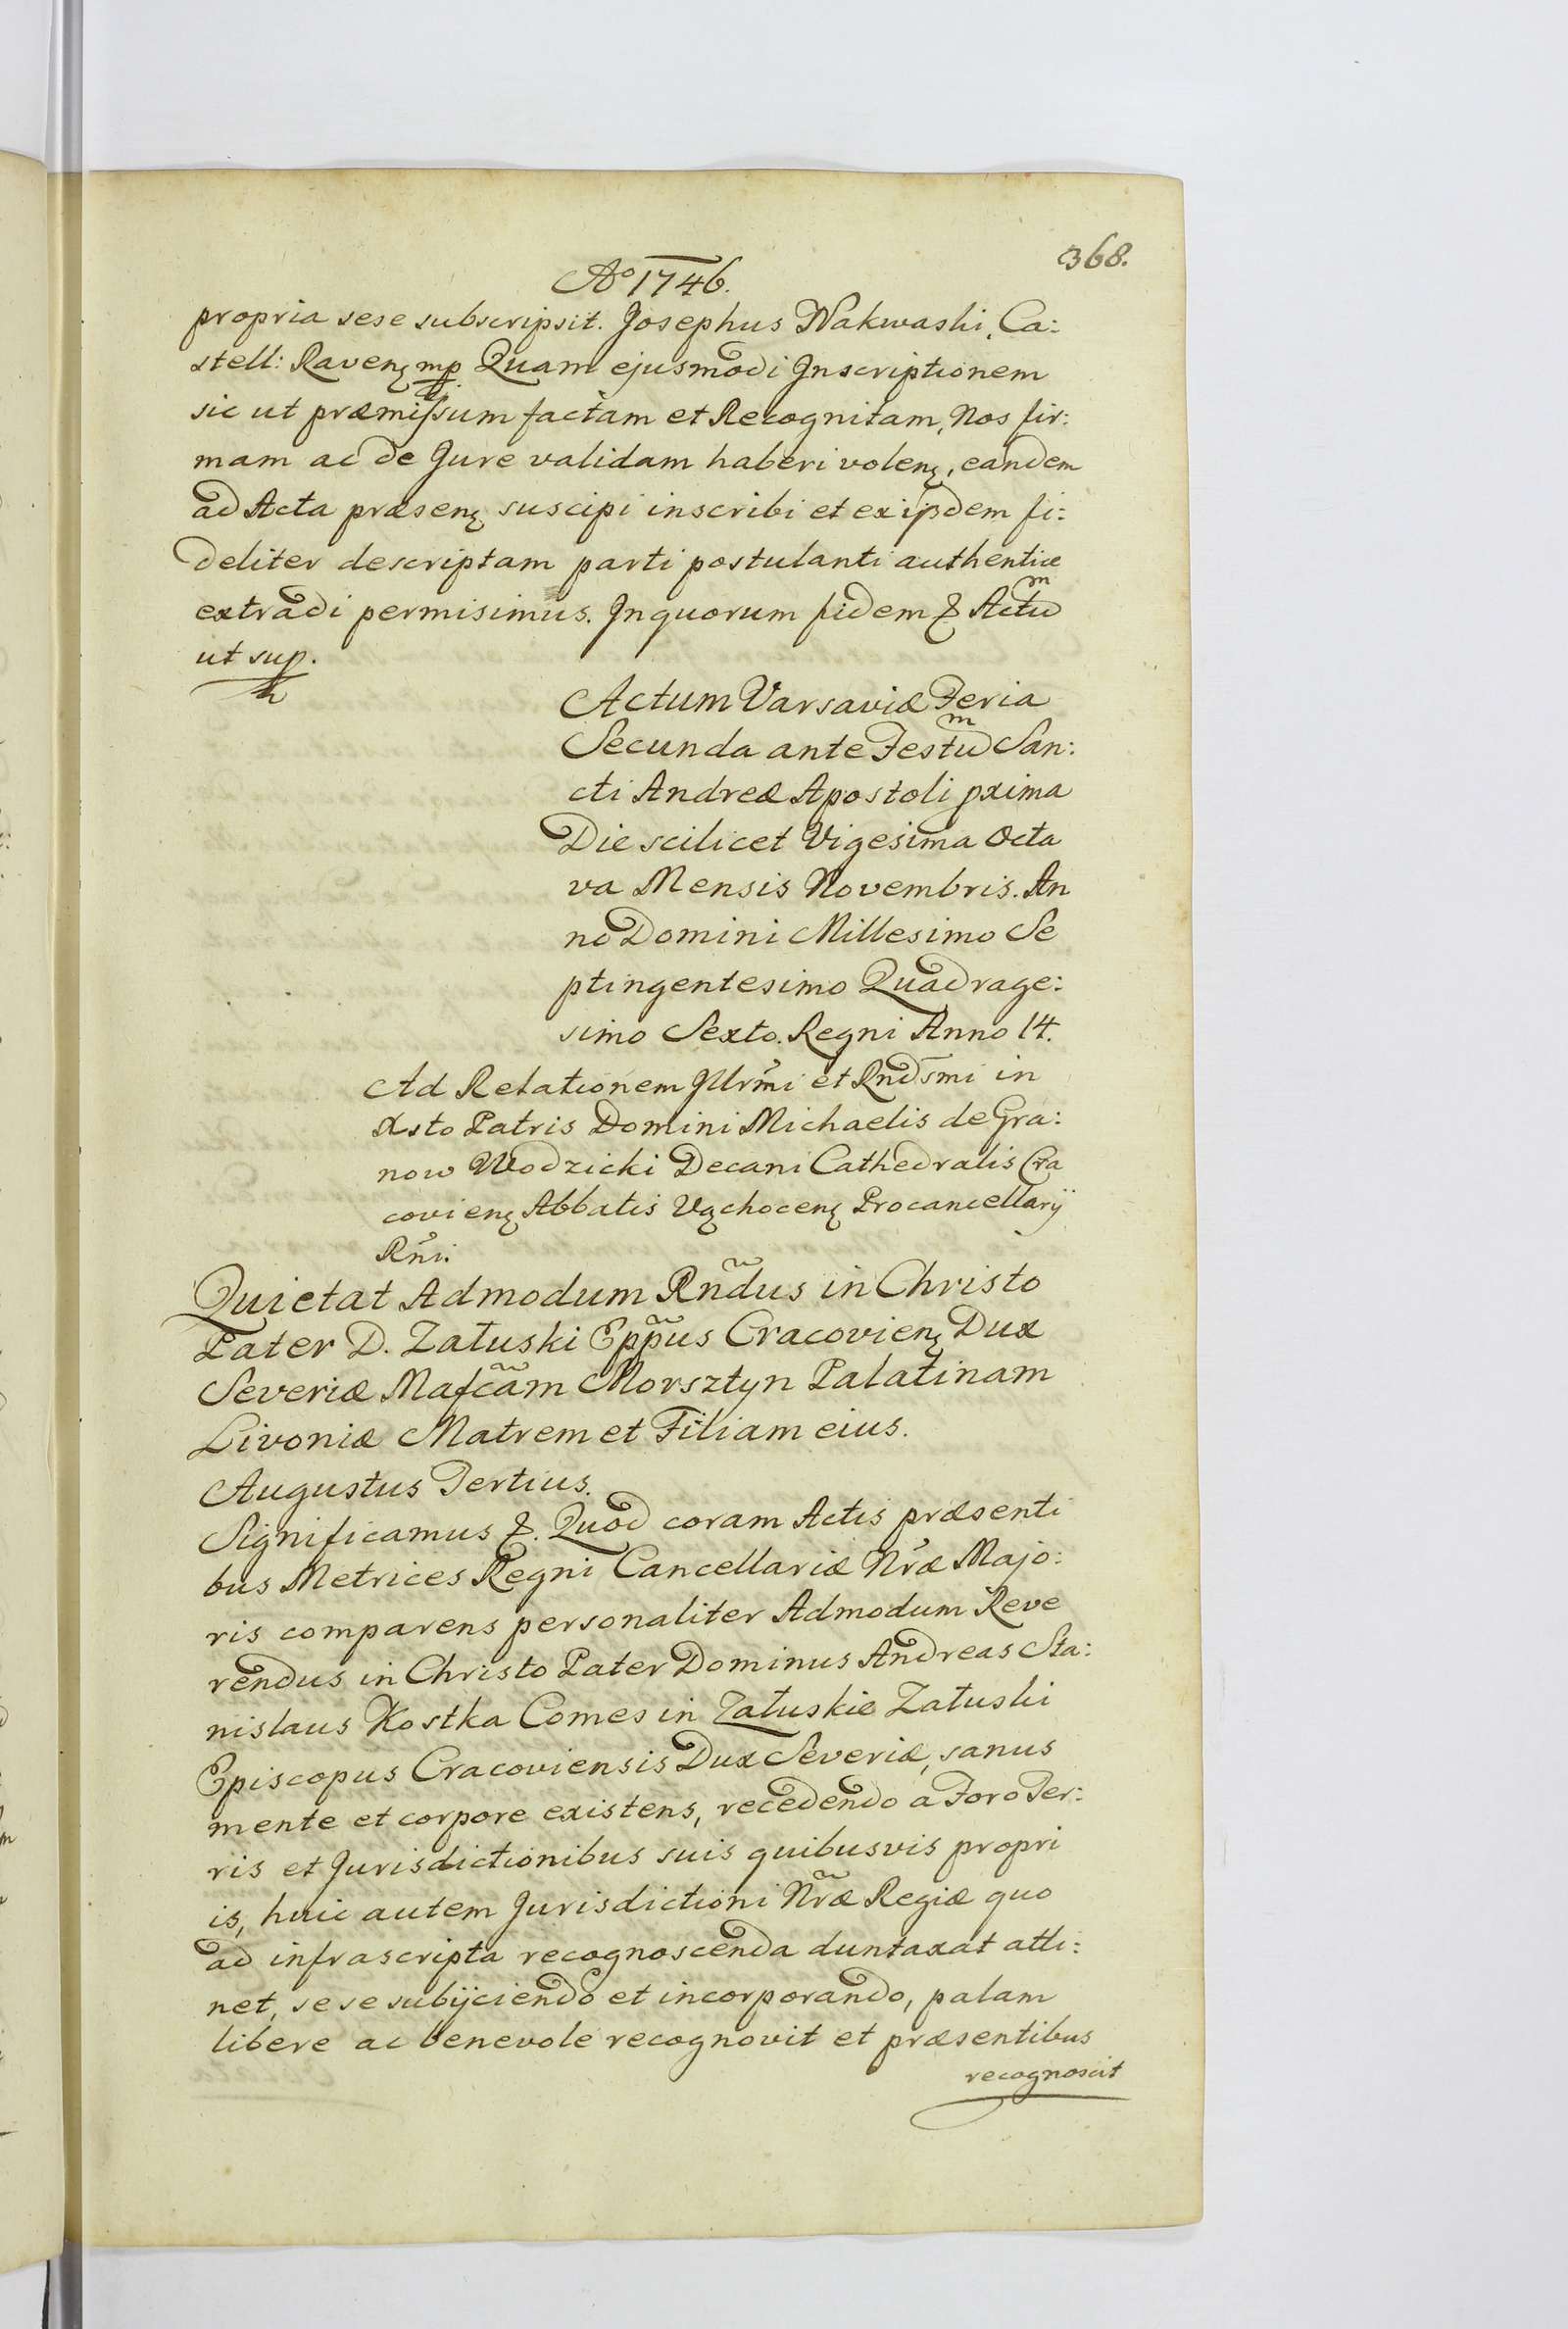 368.
Ao 1746.
propria sese subscripsit. Josephus Nakwaski, Ca:
stell: Ravenȩ mp Quam ejusmodi Inscriptionem
sic ut præmissum factam et Recognitam, Nos fir:
mam ac de Jure validam haberi volenȩ, eandem
ad Acta præsenȩ suscipi inscribi et ex ijsdem fi:
deliter descriptam parti postulanti authentice
extradi permisimus. In quorum fidem & Actum
ut sup.
Actum Varsaviæ Feria
Secunda ante Festum San:
cti Andreæ Apostoli pxima
Die scilicet Vigesima Octa
va Mensis Novembris. An
no Domini Millesimo Se
ptingentesimo Quadrage:
simo Sexto. Regni Anno 14.
Ad Relationem Illrm̃i et Rnds̃mi in
Xsto Patris Domini Michaelis de Gra:
now Wodzicki Decani Cathedralis Cra
covienȩ Abbatis Vȩchocenȩ Procancellarij
Rñi.
Quietat Admodum Rnd̃us in Christo
Pater D. Załuski Epp̃us Cracovienȩ Dux
Severiæ Mafc̃am Morsztyn Palatinam
Livoniæ Matrem et Filiam eius.
Augustus Tertius.
Significamus &. Quod coram Actis præsenti
bus Metrices Regni Cancellariæ Nr̃æ Majo:
ris comparens personaliter Admodum Reve
rendus in Christo Pater Dominus Andreas Sta:
nislaus Kostka Comes in Załuskie Załuski
Episcopus Cracoviensis Dux Severiæ, sanus
mente et corpore existens, recedendo a Foro Ter:
ris et Jurisdictionibus suis quibusvis propri
is, huic autem Jurisdictioni Nr̃æ Regiæ quo
ad infrascripta recognoscenda duntaxat atti:
net, sese subijciendo et incorporando, palam
libere ac benevole recognovit et præsentibus
recognoscit